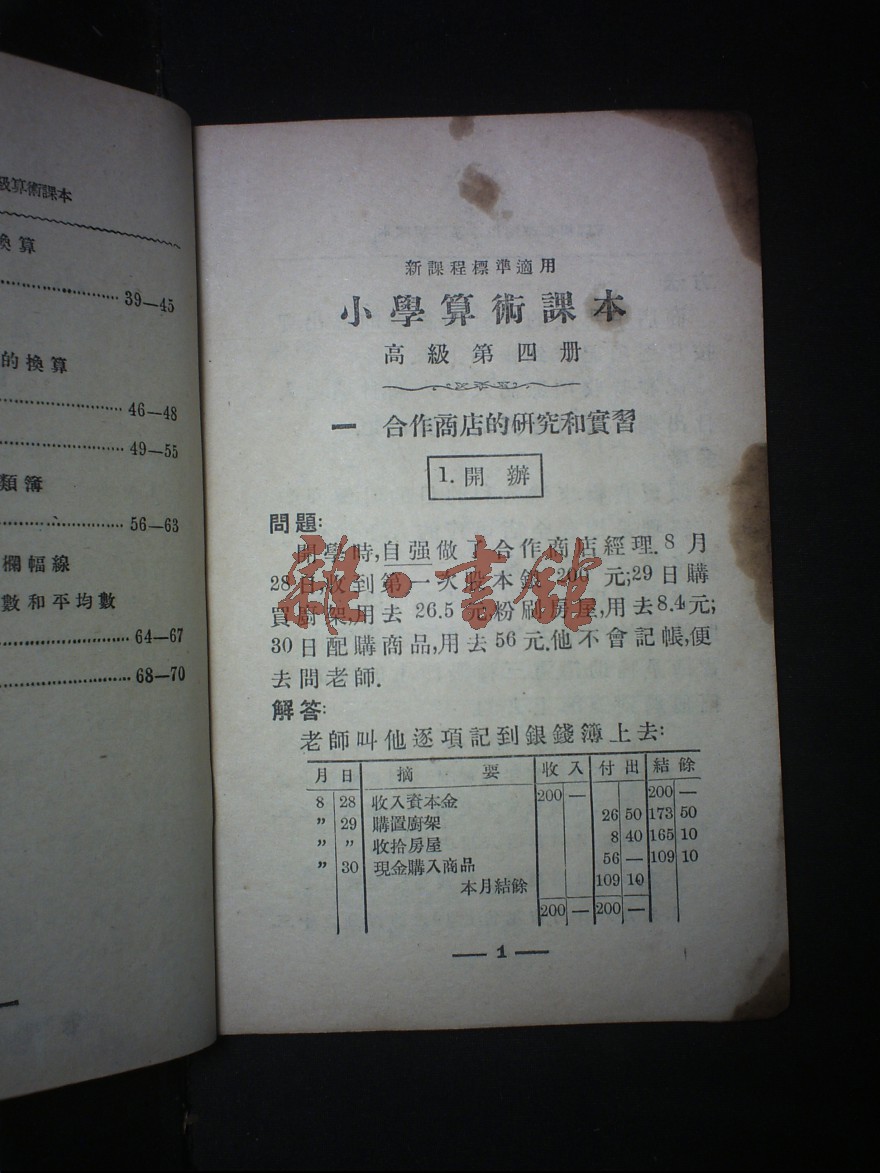 級算術課本
換算
39—45
的換算
46—48
49—55
類簿
56—63
欄幅線
數和平均數
64—67
68—70
新課程標準適用
小學算術課本
高級第四册
一 合作商店的研究和實習
1. 開辦
問題:
開學時,自强做了合作商店經理.8月
28日收到第一次股本錢 200 元;29日購
買廚架,用去 26.5 元,粉刷房屋,用去8.4元;
30日配購商品,用去56元.他不會記帳,便
去問老師.
解答:
老師叫他逐項記到銀錢簿上去:
月 日 摘 要 收入 付出 結餘
8 28 收入資本金 200 — 200 —
〃 29 購置廚架 26 50 173 50
〃 〃 收拾房屋 8 40 165 10
〃 30 現金購入商品 56 — 109 10
本月結餘 109 10
200 — 200 —
— 1 —
雜·書館